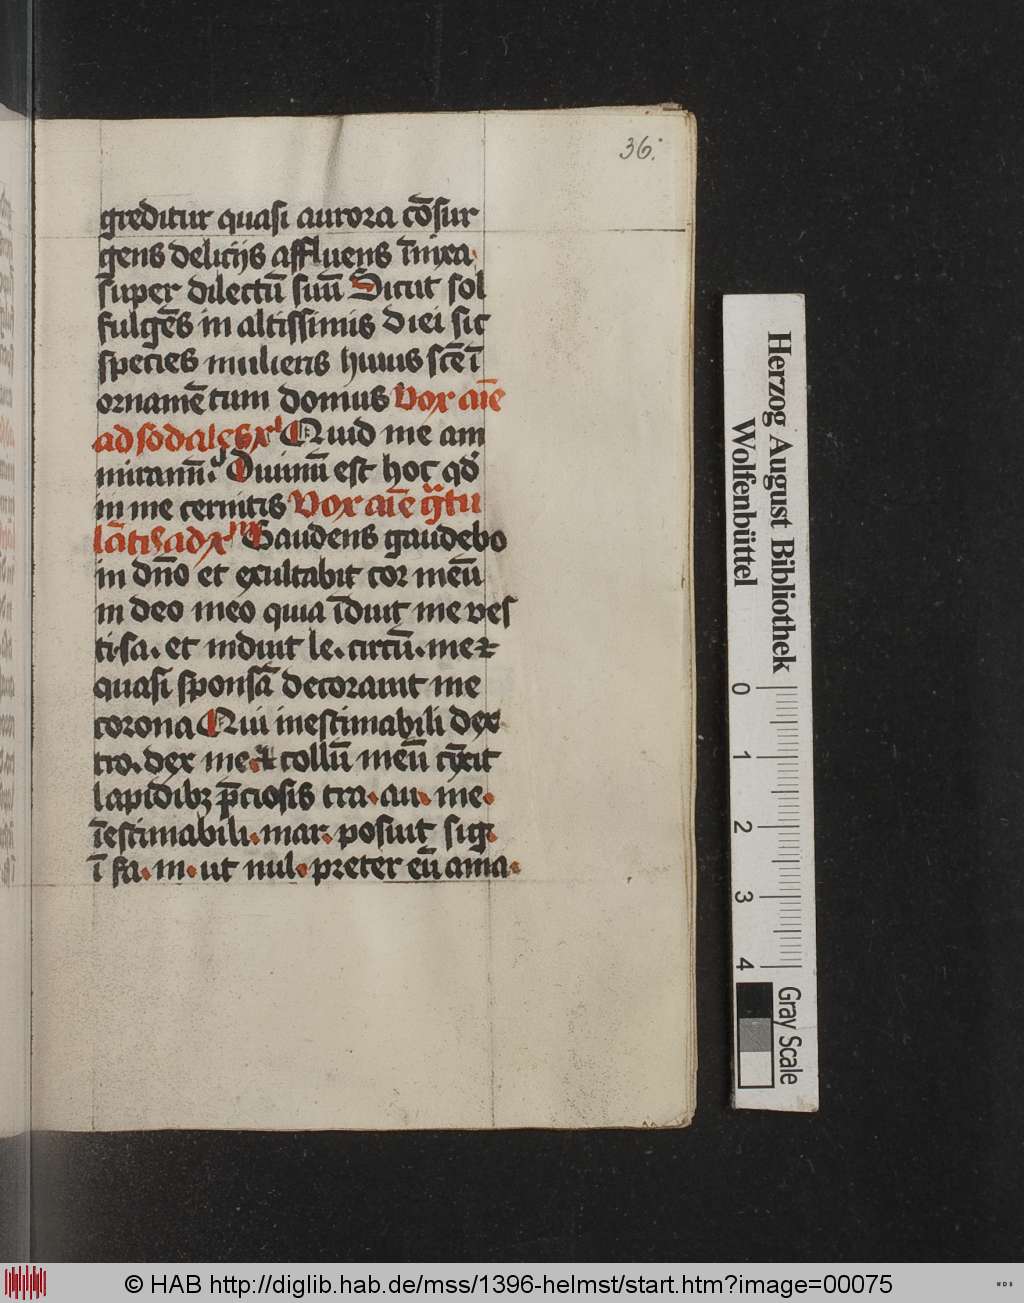 36.
greditur quasi aurora cōsur
gens delicijs affluens īnixa
super dilectū suū Sicut sol
fulgēs in altissimis diei sic
species mulieris huius scē ī
ornamētum domus Vox aīe
ad sodales xpi Quid me am
miramī. Diuinū est hoc qd
in me cernitis Vox aīe gratu
lātis ad xpm Gaudens gaudebo
in dño et exultabit cor meū
in deo meo quia īduit me ves
ti. sa. et induit le. circū. me et
quasi sponsā decorauit me
corona Qui inestimabili dex
tro. dex me. et collū meū cinxit
lapidibꝫ p̄ciosis tra. au. me.
īestimabili. mar. posuit sig.
ī fa. m. ut nul. preter eū ama.
Herzog August Bibliothek
Wolfenbüttel
0 1 2 3 4
Gray Scale
© HAB http://diglib.hab.de/mss/1396-helmst/start.htm?image=00075
WDB